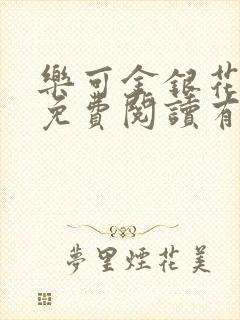 樂可金銀花
免費閱讀有
夢里煙花美